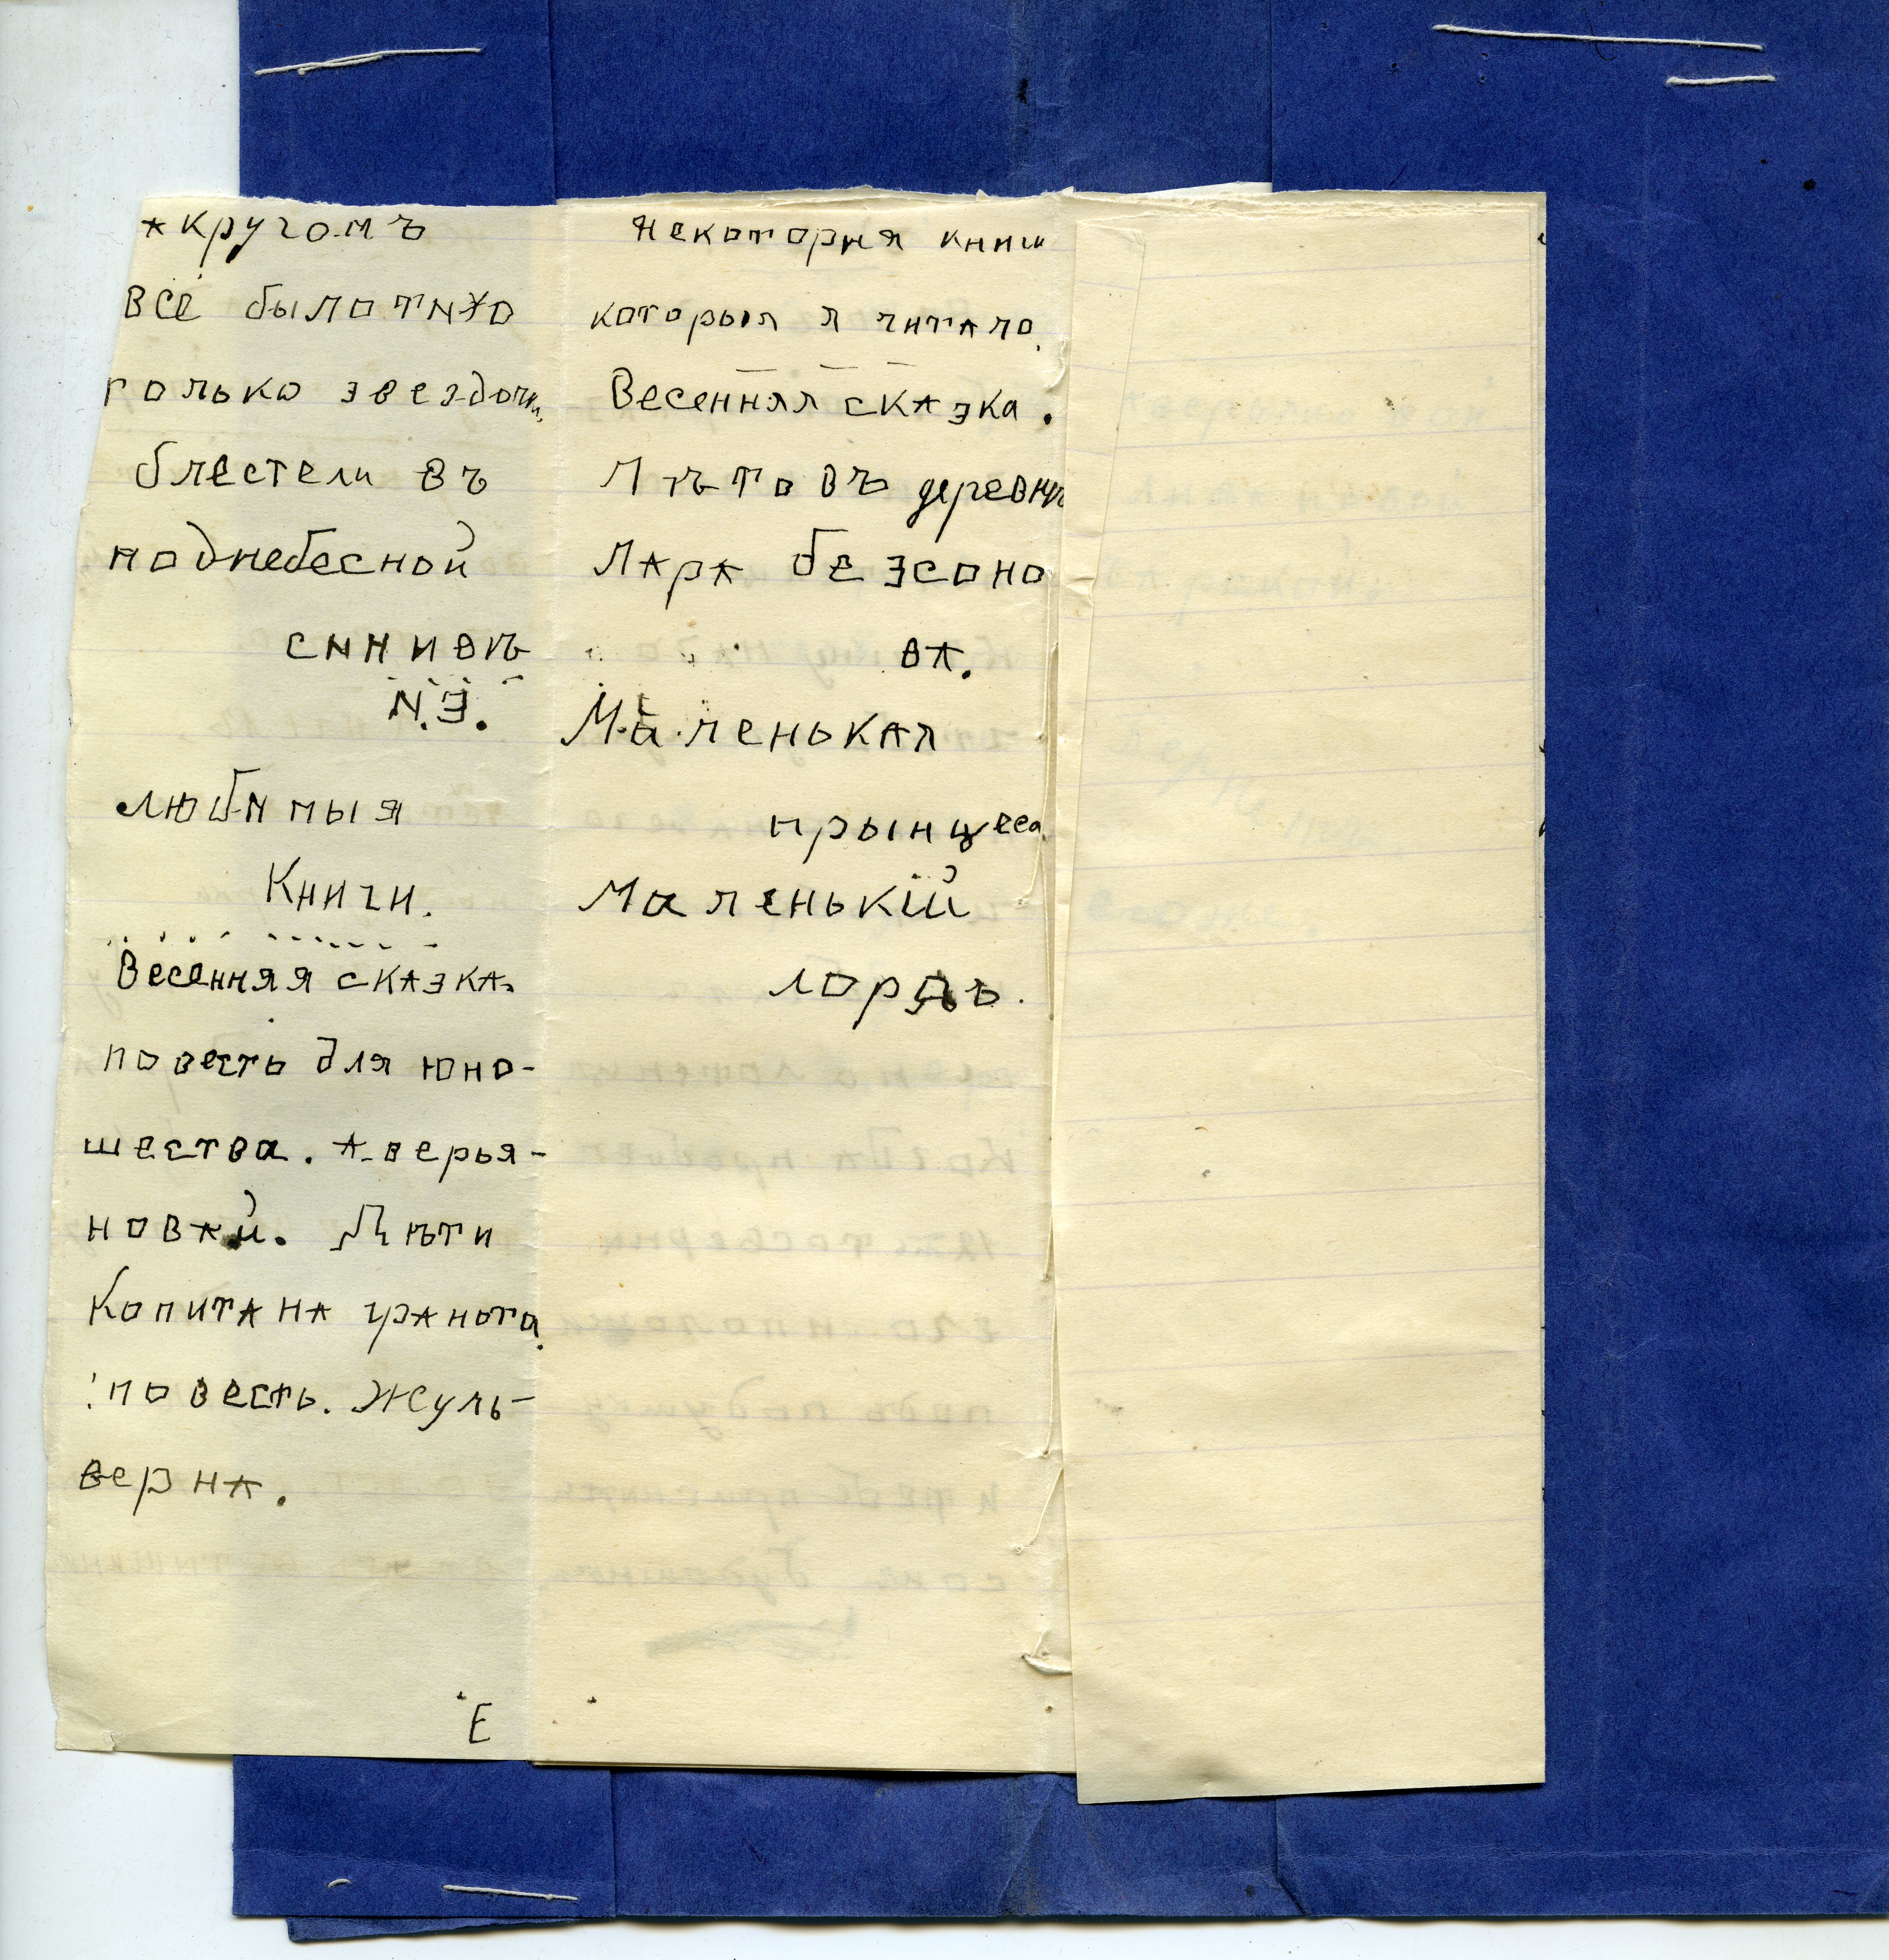 А кругомъ
всё было тихо
только звездочки
блестели въ
поднебесной
синивѣ
И.Э.
любимыя
Книги.
Весенняя сказка.
повесть для юно-
шества. Аверья-
новай. Дѣти
Копитана гранота
повесть. Жуль-
верна.
Е
Некоторыя книги
которыя я читало.
Весенняя сказка.
Лѣто въ деревнѣ
Лара безсоно
ва.
Маленькая
прынцеса.
Маленькій
лордъ.